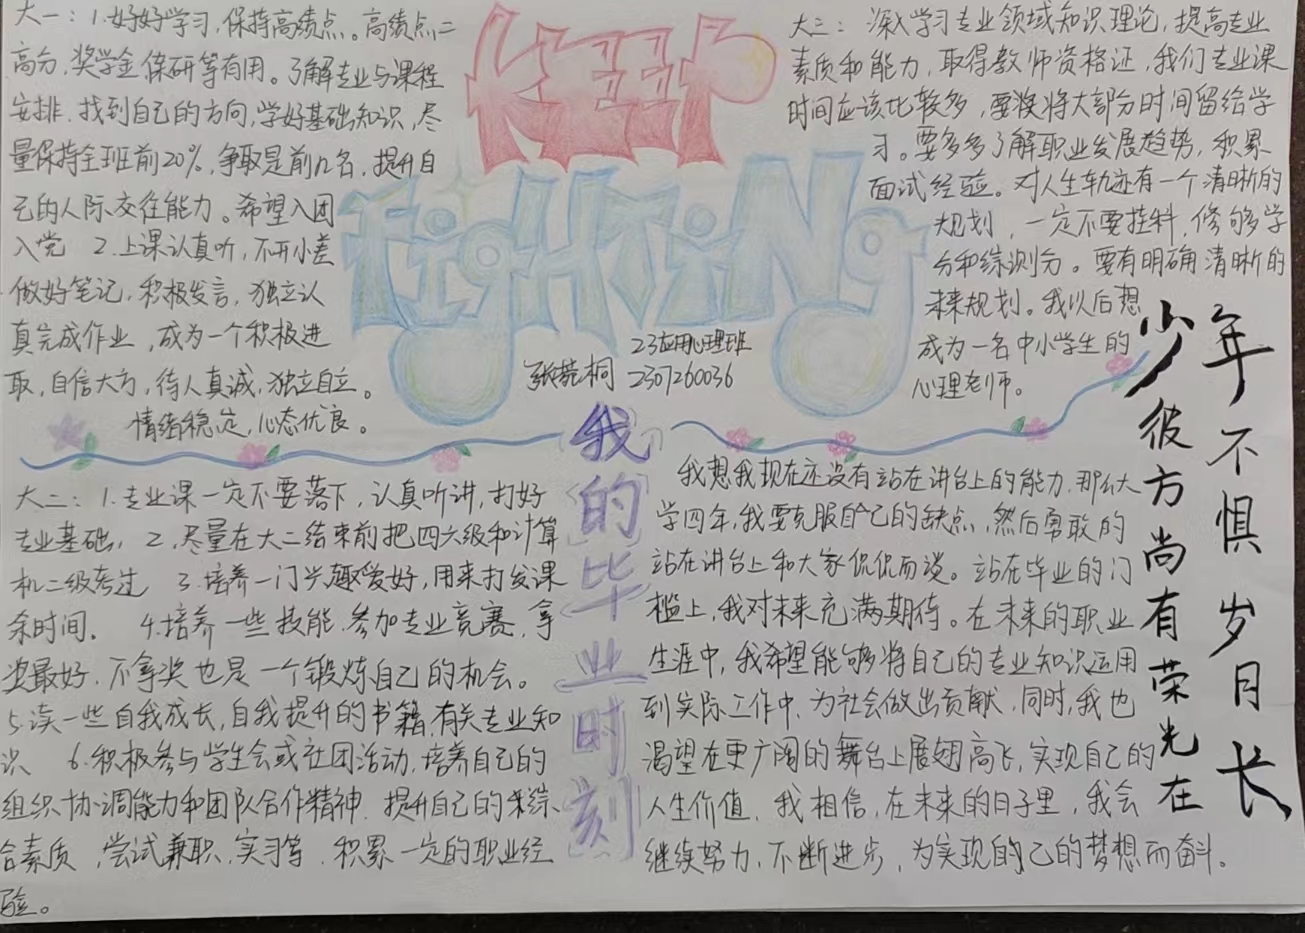 大一：1.好好学习，保持高绩点。高绩点二
高分，奖学金保研等有用。了解专业与课程
安排，找到自己的方向，学好基础知识，尽
量保持全班前20%，争取是前几名，提升自
己的人际交往能力。希望入团
入党 2.上课认真听，不开小差
做好笔记，积极发言，独立认
真完成作业，成为一个积极进
取，自信大方，待人真诚，独立自立。
情绪稳定，心态优良。
KEEP
FigHTiNg
23应用心理班
桐 2307260036
大三：深入学习专业领域知识理论，提高专业
素质和能力，取得教师资格证，我们专业课
时间应该比较多，要将大部分时间留给学
习。要多多了解职业发展趋势，积累
面试经验。对人生轨迹有一个清晰的
规划，一定不要挂科，修够学
分和综测分。要有明确清晰的
未来规划。我以后想
成为一名中小学生的
心理老师。
大二：1.专业课一定不要落下，认真听讲，打好
专业基础，2.尽量在大二结束前把四六级和计算
机二级考过 3.培养一门兴趣爱好，用来打发课
余时间。 4.培养一些技能，参加专业竞赛，拿
奖最好，不拿奖也是一个锻炼自己的机会。
5.读一些自我成长，自我提升的书籍，有关专业知
识 6.积极参与学生会或社团活动，培养自己的
组织协调能力和团队合作精神，提升自己的综
合素质，尝试兼职，实习等，积累一定的职业经
验。
我的毕业时刻
我想我现在还没有站在讲台上的能力，那么大
学四年，我要克服自己的缺点，然后勇敢的
站在讲台上和大家侃侃而谈。站在毕业的门
槛上，我对未来充满期待。在未来的职业
生涯中，我希望能够将自己的专业知识运用
到实际工作中，为社会做出贡献，同时，我也
渴望在更广阔的舞台上展翅高飞，实现自己的
人生价值，我相信，在未来的日子里，我会
继续努力，不断进步，为实现自己的梦想而奋斗。
少年不惧岁月长
彼方尚有荣光在